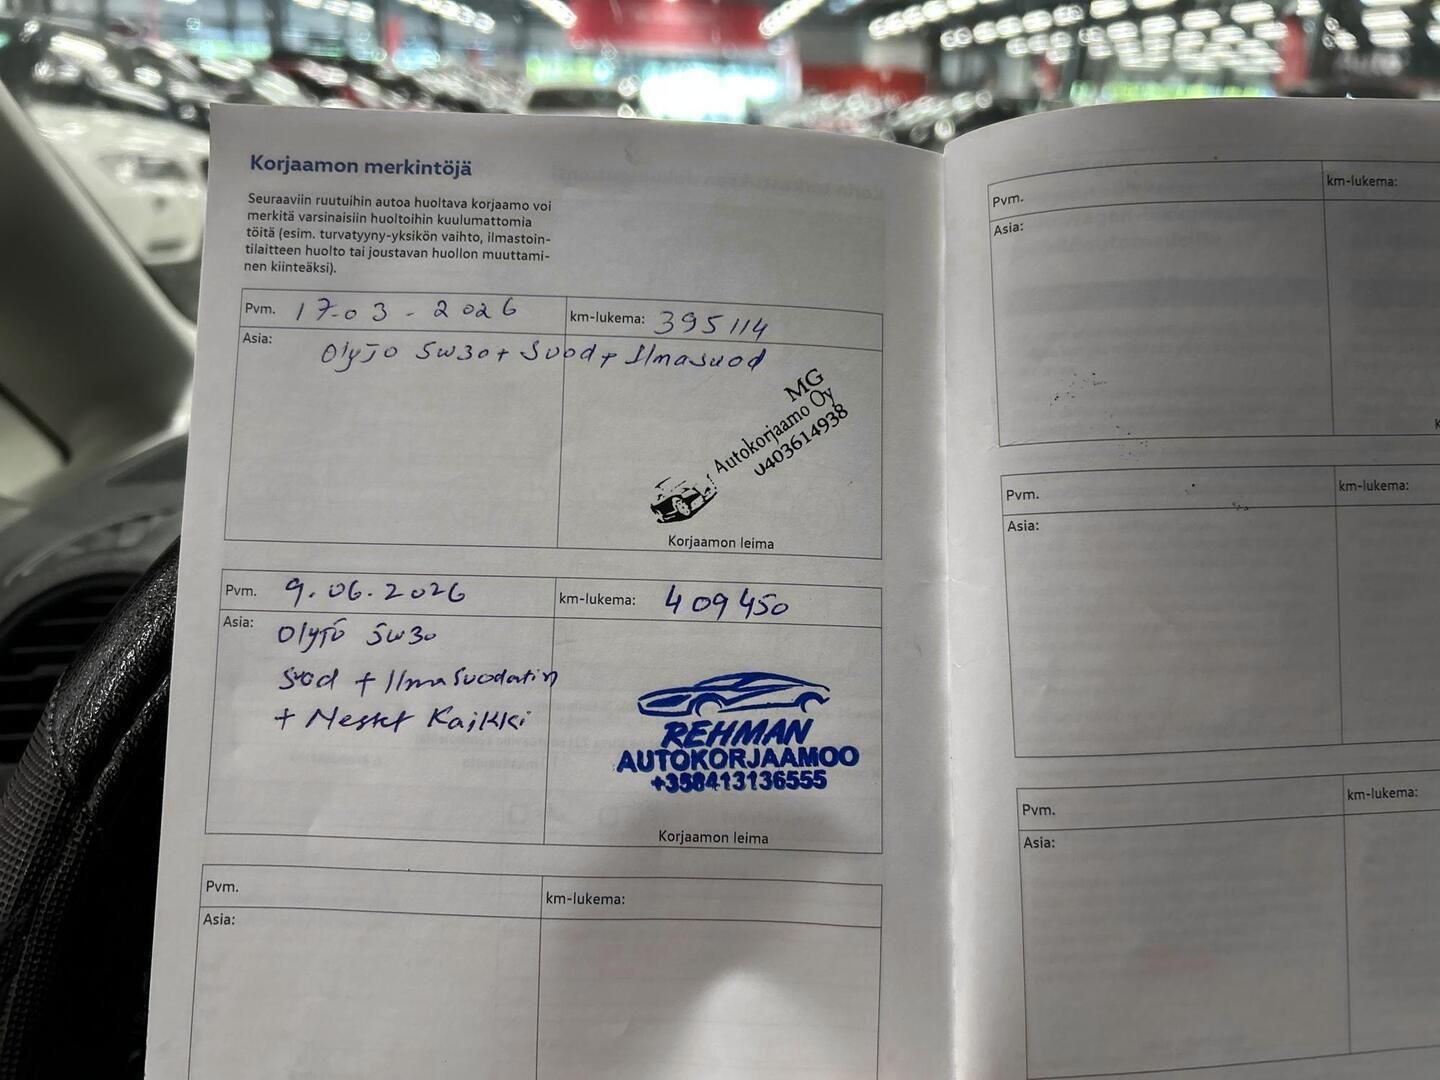 Korjaamon merkintöjä
Seuraaviin ruutuihin autoa huoltava korjaamo voi
merkitä varsinaisiin huoltoihin kuulumattomia
töitä (esim. turvatyyny-yksikön vaihto, ilmastoin-
tilaitteen huolto tai joustavan huollon muuttami-
nen kiinteäksi).
Pvm. 17-03-2026 km-lukema: 395114
Asia: Olyjo 5w30 + Suod + Ilmasuod
MG
Autokorjaamo Oy
0403614938
Korjaamon leima
Pvm. 9.06.2026 km-lukema: 409450
Asia: Olyjö 5w30
Suod + Ilmasuodatin
+ Nestet Kaikki
REHMAN
AUTOKORJAAMOO
+358413136555
Korjaamon leima
Pvm. km-lukema:
Asia:
Pvm. km-lukema:
Asia:
Pvm. km-lukema:
Asia:
Pvm. km-lukema:
Asia: